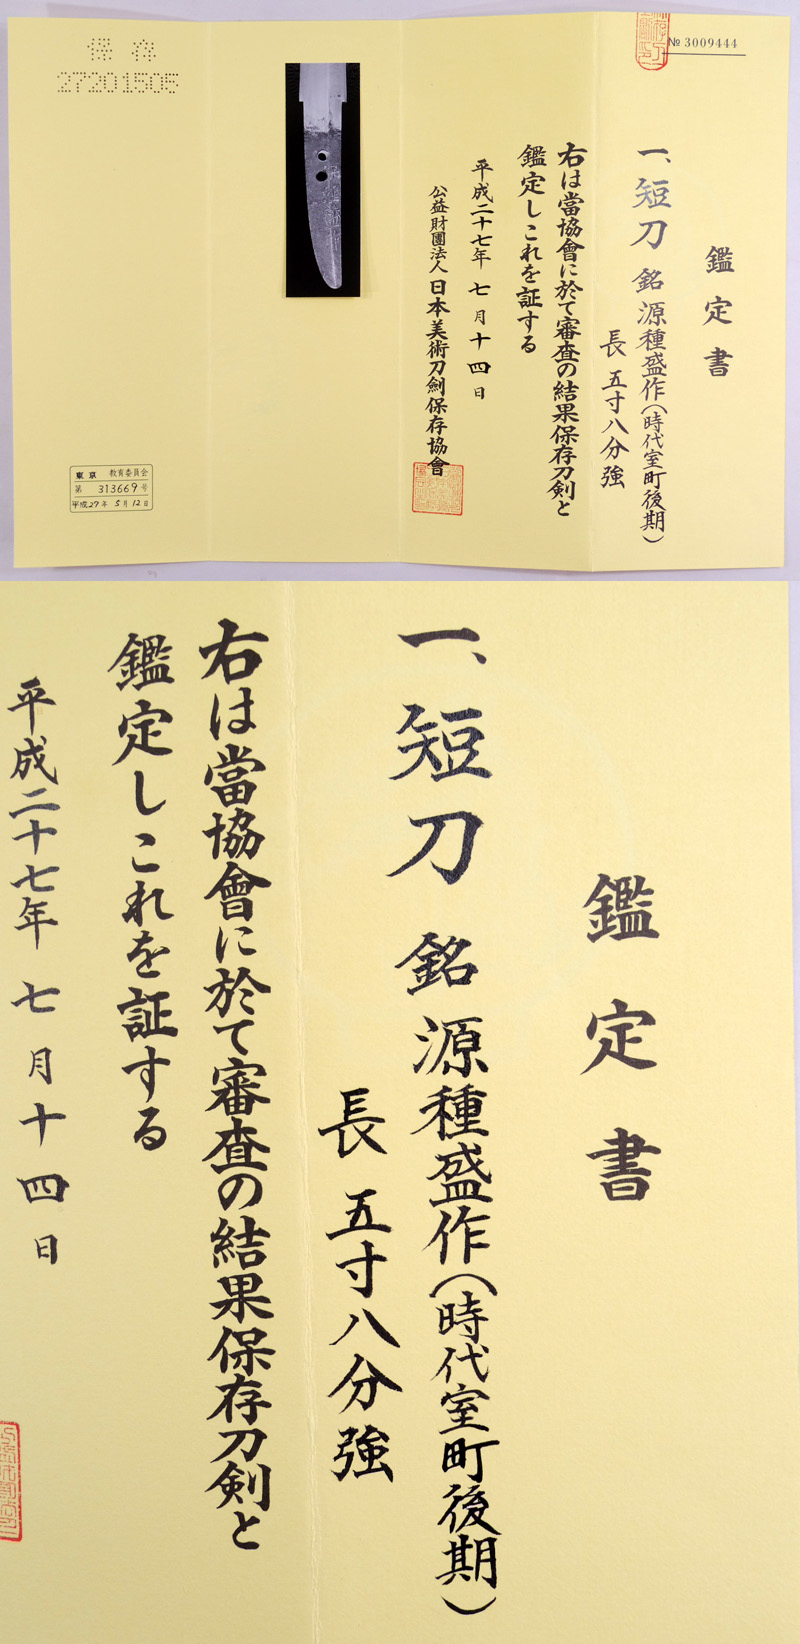 № 3009444
鑑定書
一、短刀 銘 源種盛作(時代室町後期)
長 五寸八分強
右は當協會に於て審査の結果保存刀剣と
鑑定しこれを証する
平成二十七年 七月十四日
公益財團法人 日本美術刀劍保存協會
保存
27201505
東京 教育委員会
第 313669 号
平成27年 5月12日
鑑定書
一、短刀 銘 源種盛作(時代室町後期)
長 五寸八分強
右は當協會に於て審査の結果保存刀剣と
鑑定しこれを証する
平成二十七年 七月十四日